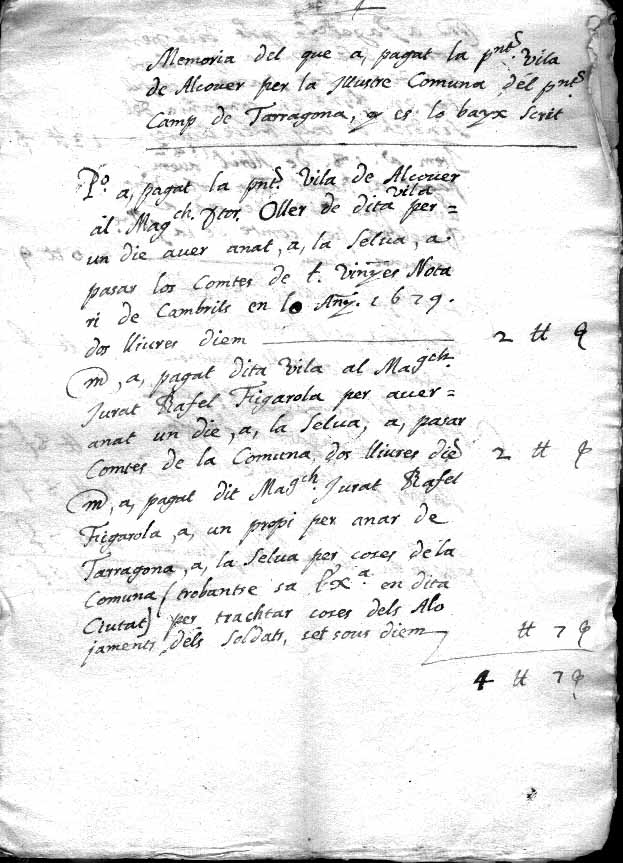 Memoria del que a, pagat la pnt. Vila
de Alcouer per la Illustre Comuna del pnt.
Camp de Tarragona, y es lo bayx scrit
Po. a, pagat la pnt. Vila de Alcouer
al Magch. Dtor. Oller de dita vila per=
un die auer anat, a, la Selua, a
pasar los Comtes de t. Vinyes Nota
ri de Cambrils en lo Any. 1679.
dos lliures diem 2 ℔ ꝗ
m, a, pagat dita Vila al Magch.
Jurat Rafel Figarola per auer=
anat un die, a, la Selua, a, pasar
Comtes de la Comuna, dos lliures die 2 ℔ ꝗ
m, a, pagat dit Magch. Jurat Rafel
Figarola, a, un propi per anar de
Tarragona, a, la Selua per coses de la
Comuna (trobantse sa Exa. en dita
Ciutat) per trachtar coses dels Alo
jaments dels Soldats, set sous diem ℔ 7 ꝗ
4 ℔ 7 ꝗ